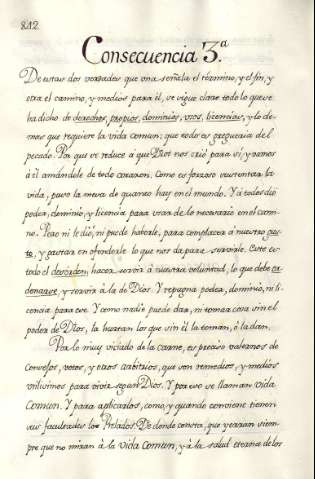 812
Consecuencia 3.ª
De estas dos verdades que una señala el término, y el fin, y
otra el camino, y medios para él, se sigue claro todo lo que se
ha dicho de derechos, propios, dominios, usos, licencias, y lo de-
mas que requiere la vida comun; que todo es del
pecado. Por que se reduce a que Dios nos crió para sí, y vamos
à èl amandole de todo corazon. Como es forzoso sustentar la
vida, puso la mesa de quanto hay en el mundo. Y à todos dió
poder, dominio, y licencia para usar de lo necesario en el cami-
no. Pero ni le dió, ni puede haberle, para complacer à nuestro gus-
to, y gastar en ofenderle lo que nos da para servirle. Este es
todo el desorden: hacer servir à nuestra voluntad, lo que debe or-
denarse, y servir à la de Dios. Y repugna poder, dominio, ni li-
cencia para eso. Y como nadie puede dar, ni tomar cosa sin el
poder de Dios, la hurtan los que sin èl la toman, ò la dan.
Por lo muy viciado de la carne, es preciso valernos de
Consejos, votos, y otros arbitrios, que son remedios, y medios
utilisimos para vivir segun Dios. Y por eso se llaman vida
Comun. Y para aplicarlos, como, y quando conviene tienen
sus facultades los Prelados. De donde consta, que yerran siem-
pre que no miran à la vida Comun, y à la salud eterna de los